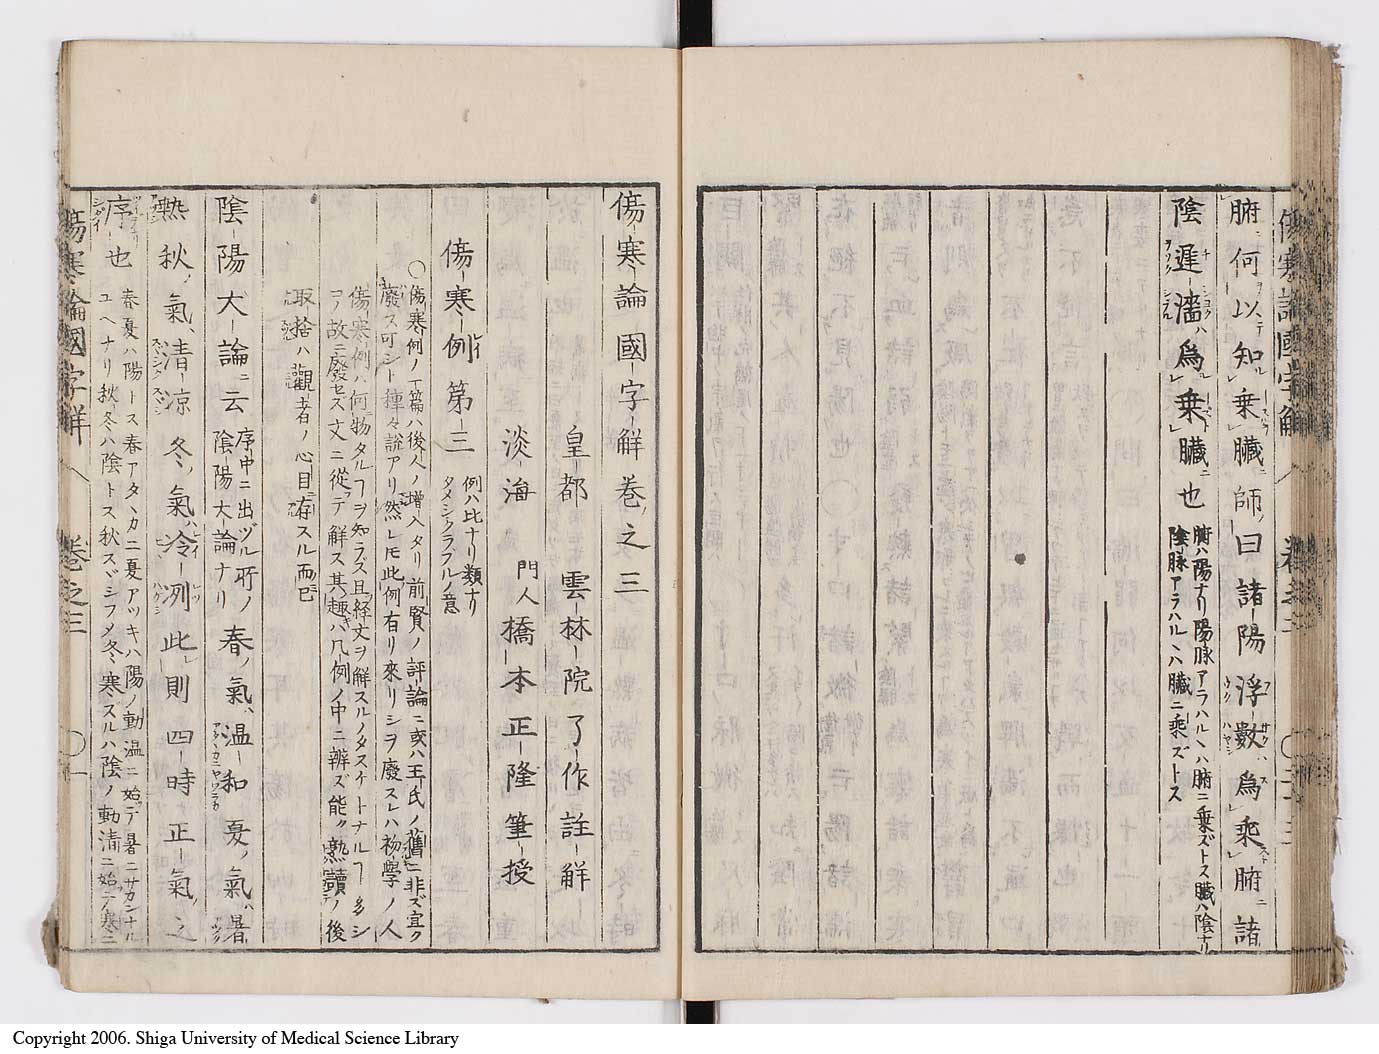 腑何以知乗臓師曰諸陽浮數爲乗腑諸
陰遲濇爲乗臓也
腑ハ陽ナリ陽脉アラハルヽハ腑ニ乗ズトス臓ハ陰ナリ
陰脉アラハルヽハ臓ニ乗ズトス
傷寒論國字解巻之三
皇都 雲林院了作註解
淡海 門人橋本正隆筆授
傷寒例第三
例ハ比ナリ類ナリ
タメシクラブルノ意
○傷寒例ノ丁篇ハ後人ノ増入タリ前賢ノ評論ニ或ハ王氏ノ舊ニ非ズ宜ク
廢ス可シト種々説アリ然レモ此例有リ來リシヲ廢スレハ初學ノ人
傷寒例ハ何物タルフヲ知ラズ且經文ヲ解スルノタスケトナルフ多シ
コノ故ニ廢セス文ニ從テ解ス其趣ハ凡例ノ中ニ辨ズ能ク熟讀ノ後
取捨ハ觀者ノ心目ニ存スル而已
陰陽大論ニ云
序中ニ出ヅル所ノ
陰陽大論ナリ
春ノ氣ハ温和夏ノ氣ハ暑
熱秋ノ氣ハ清凉冬ノ氣ハ冷冽此レ則四時正氣ノ之
序也
春夏ハ陽トス春アタヽカニ夏アツキハ陽ノ動温ニ始テ暑ニサカンナル
ユヘナリ秋冬ハ陰トス秋スヾシフメ冬寒スルハ陰ノ動清ニ始テ寒ニ
傷寒論國字解 巻之三 ○一